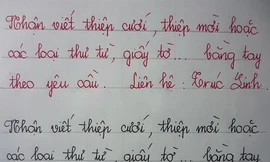 Nhận viết thiệp cưới, thiệp mời hoặc
các loại thư từ, giấy tờ... bằng tay
theo yêu cầu. Liên hệ: Trúc Linh.
Nhận viết thiệp cưới, thiệp mời hoặc
các loại thư từ, giấy tờ... bằng tay